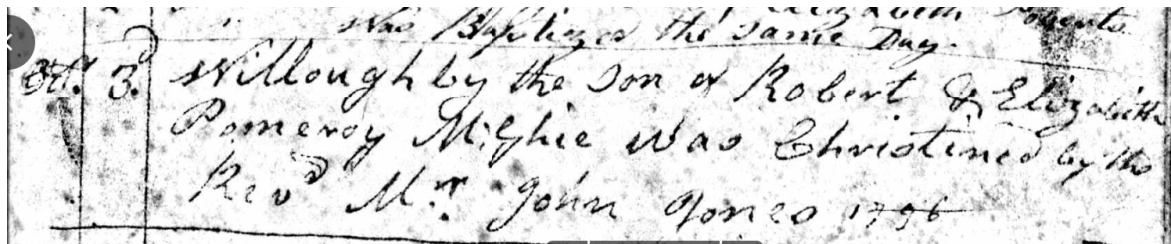 Elizabeth Roberts
Was Baptized the same Day.
Oct. 3d. Willoughby the Son of Robert & Elizabeth
Pomeroy McGhie was Christined by the
Revd Mr. John Jones 1796